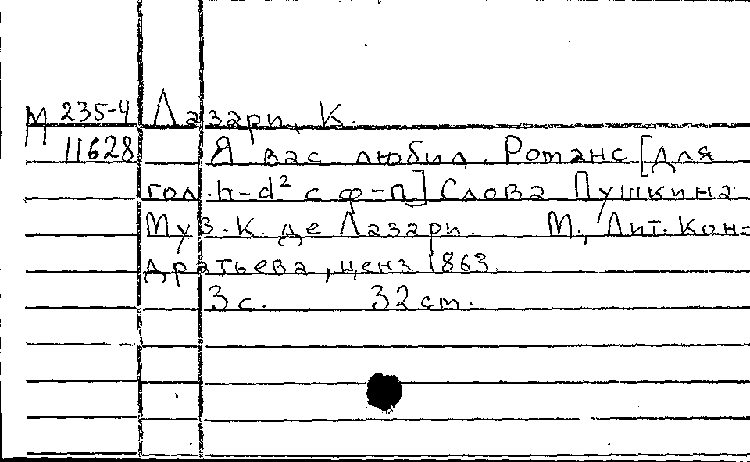 М 235-4 Лазари, К.
11628 Я вас любил. Романс [для
гол. h-d² с ф-п] Слова Пушкина
Муз. К. де Лазари М., Лит. Кон-
дратьева, ценз 1863.
3 с. 32 cm.